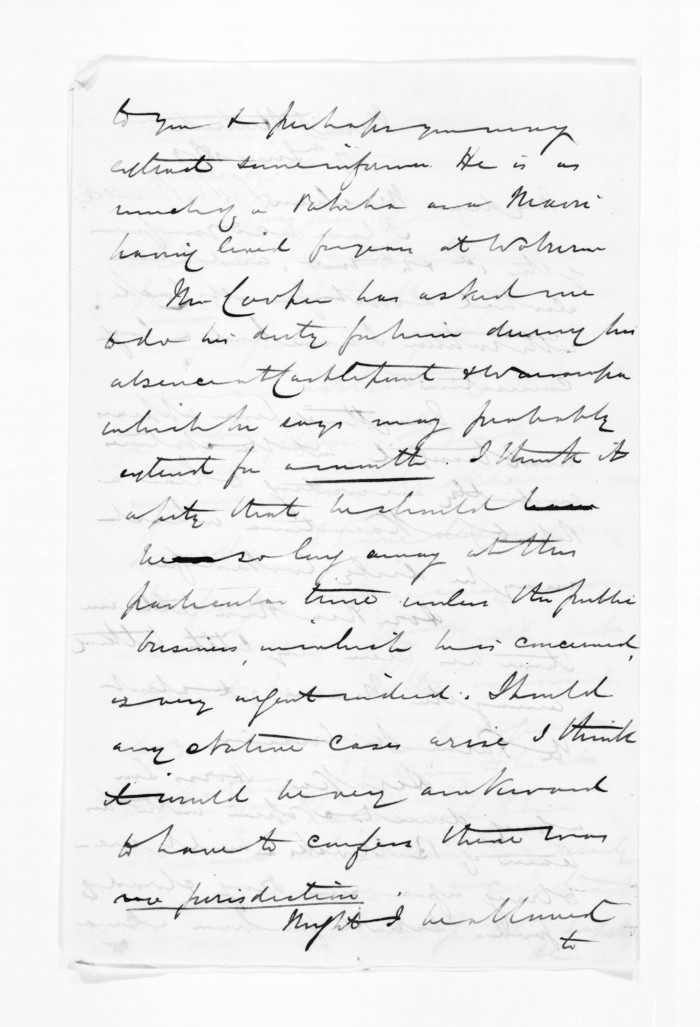 to you & perhaps you may
extract some informn. He is as
much of a Pakeha as a Maori
having lived for years at
Mr Cooper has asked me
to do his duty for him during his
absence at Castlepoint & Wairarapa
which he says may probably
extend for a month. I think it
a pity that he should
be so long away at this
particular time unless the public
business, in which he is concerned,
is very urgent indeed. Should
any Native cases arise I think
it would be very awkward
to have to confess there was
no jurisdiction.
Might I be allowed
to